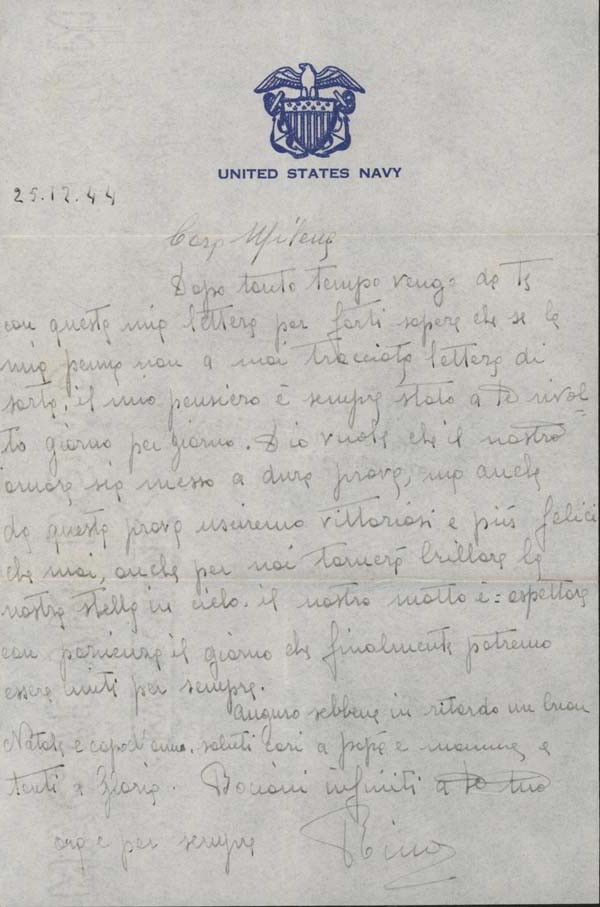 UNITED STATES NAVY
25.12.44
Cara Milena
Dopo tanto tempo vengo da te
con questa mia lettera per farti sapere che se la
mia penna non a mai tracciato lettera di
sorta, il mio pensiero è sempre stato a te rivol=
to giorno per giorno. Dio vuole che il nostro
amore sia messo a dura prova, ma anche
da questa prova usciremo vittoriosi e più felici
che mai, anche per noi tornerà brillare la
nostra stella in cielo. il nostro motto è: aspettare
con pazienza il giorno che finalmente potremo
essere uniti per sempre.
Auguro sebbene in ritardo un buon
Natale e capod'anno. saluti cari a papà e mamma e
tanti a Bacioni infiniti tuo
ora e per sempre